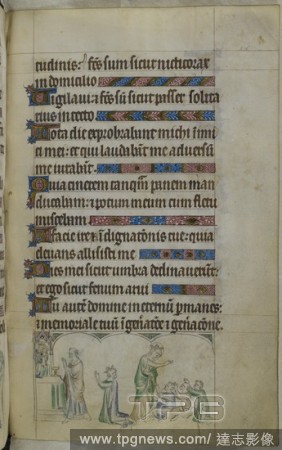 tudinis: fc̃s sum sicut nicticorax
in domicilio
Vigilaui: ⁊ fc̃s sũ sicut passer solita
rius in tecto
Tota die exprobrabant michi inimi
ci mei: et qui laudabãt me aduersũ
me iurabãt.
Quia cinerem tanq̃m panem man
ducabam: ⁊ potum meum cum fletu
miscebam
A facie ire ⁊ indignatõnis tue: quia
eleuans allisisti me
Dies mei sicut umbra declinauerũt:
et ego sicut fenum arui
Tu autẽ domine in eternũ p̃manes:
⁊ memoriale tuũ ĩ gen̾atõe ⁊ gen̾acõne.
TPG
www.tpgnews.com/達志影像